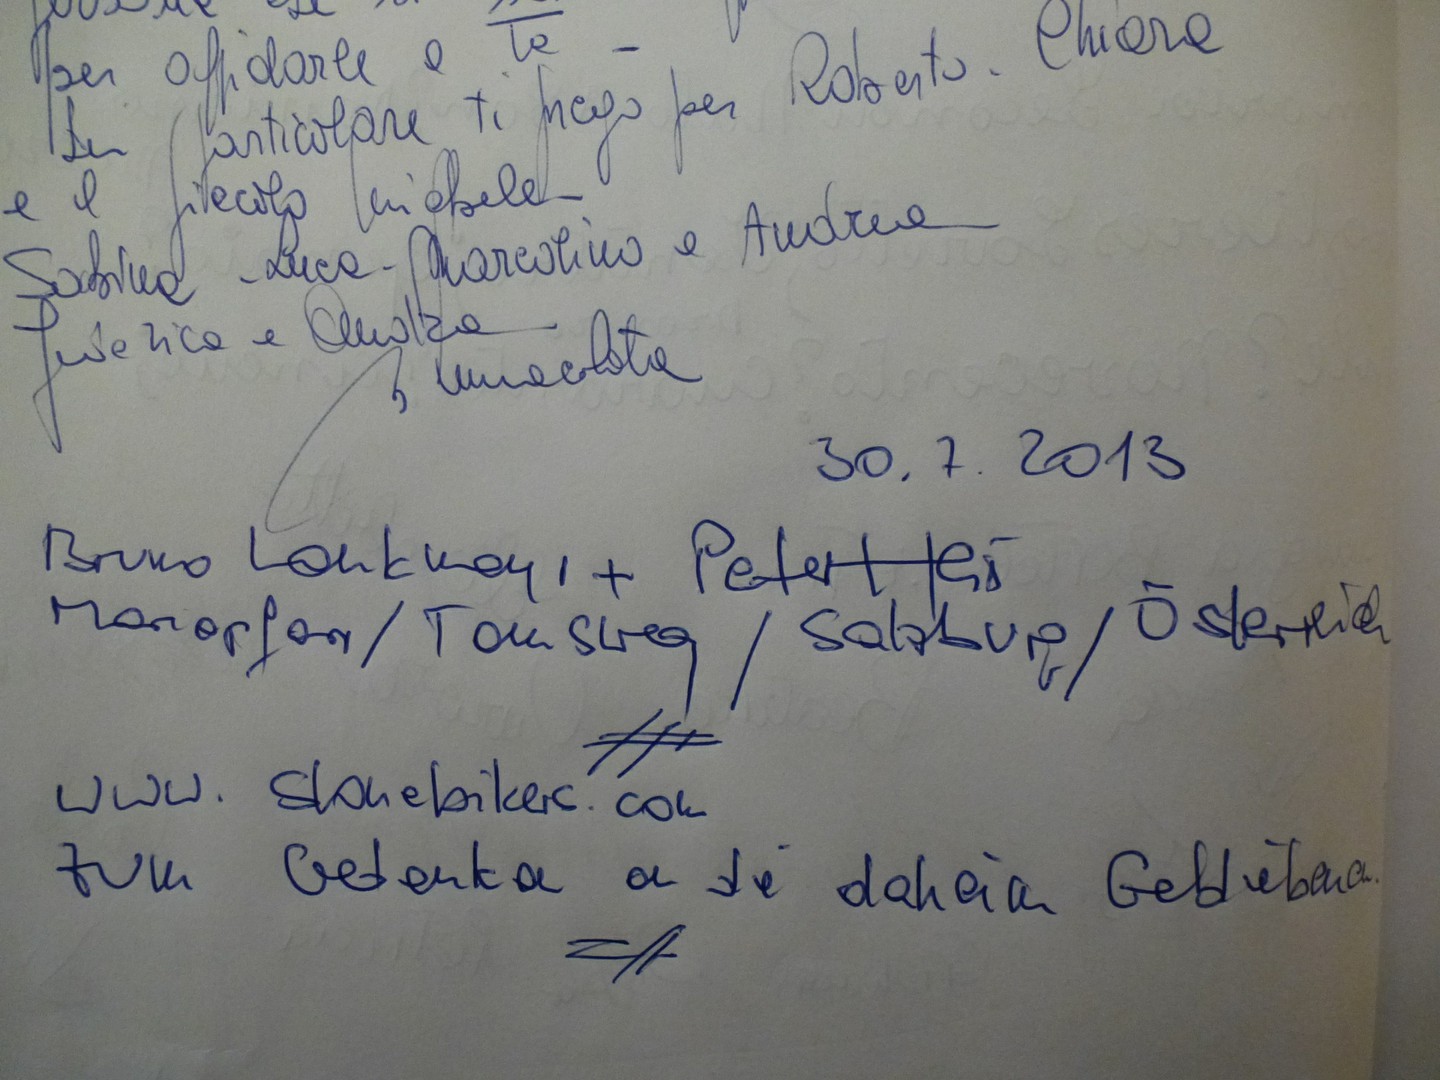 per affidarle a Te -
In particolare ti prego per Roberto. Chiara
e il piccolo Michele -
Sabina - Luca - Marcolino e Andrea
e
Immacolata
30.7.2013
Bruno + Peter
Mariapfarr/Tamsweg/Salzburg/Österreich
www.stonebikers.com
zum Gedenka a die daheim Gebliebena.